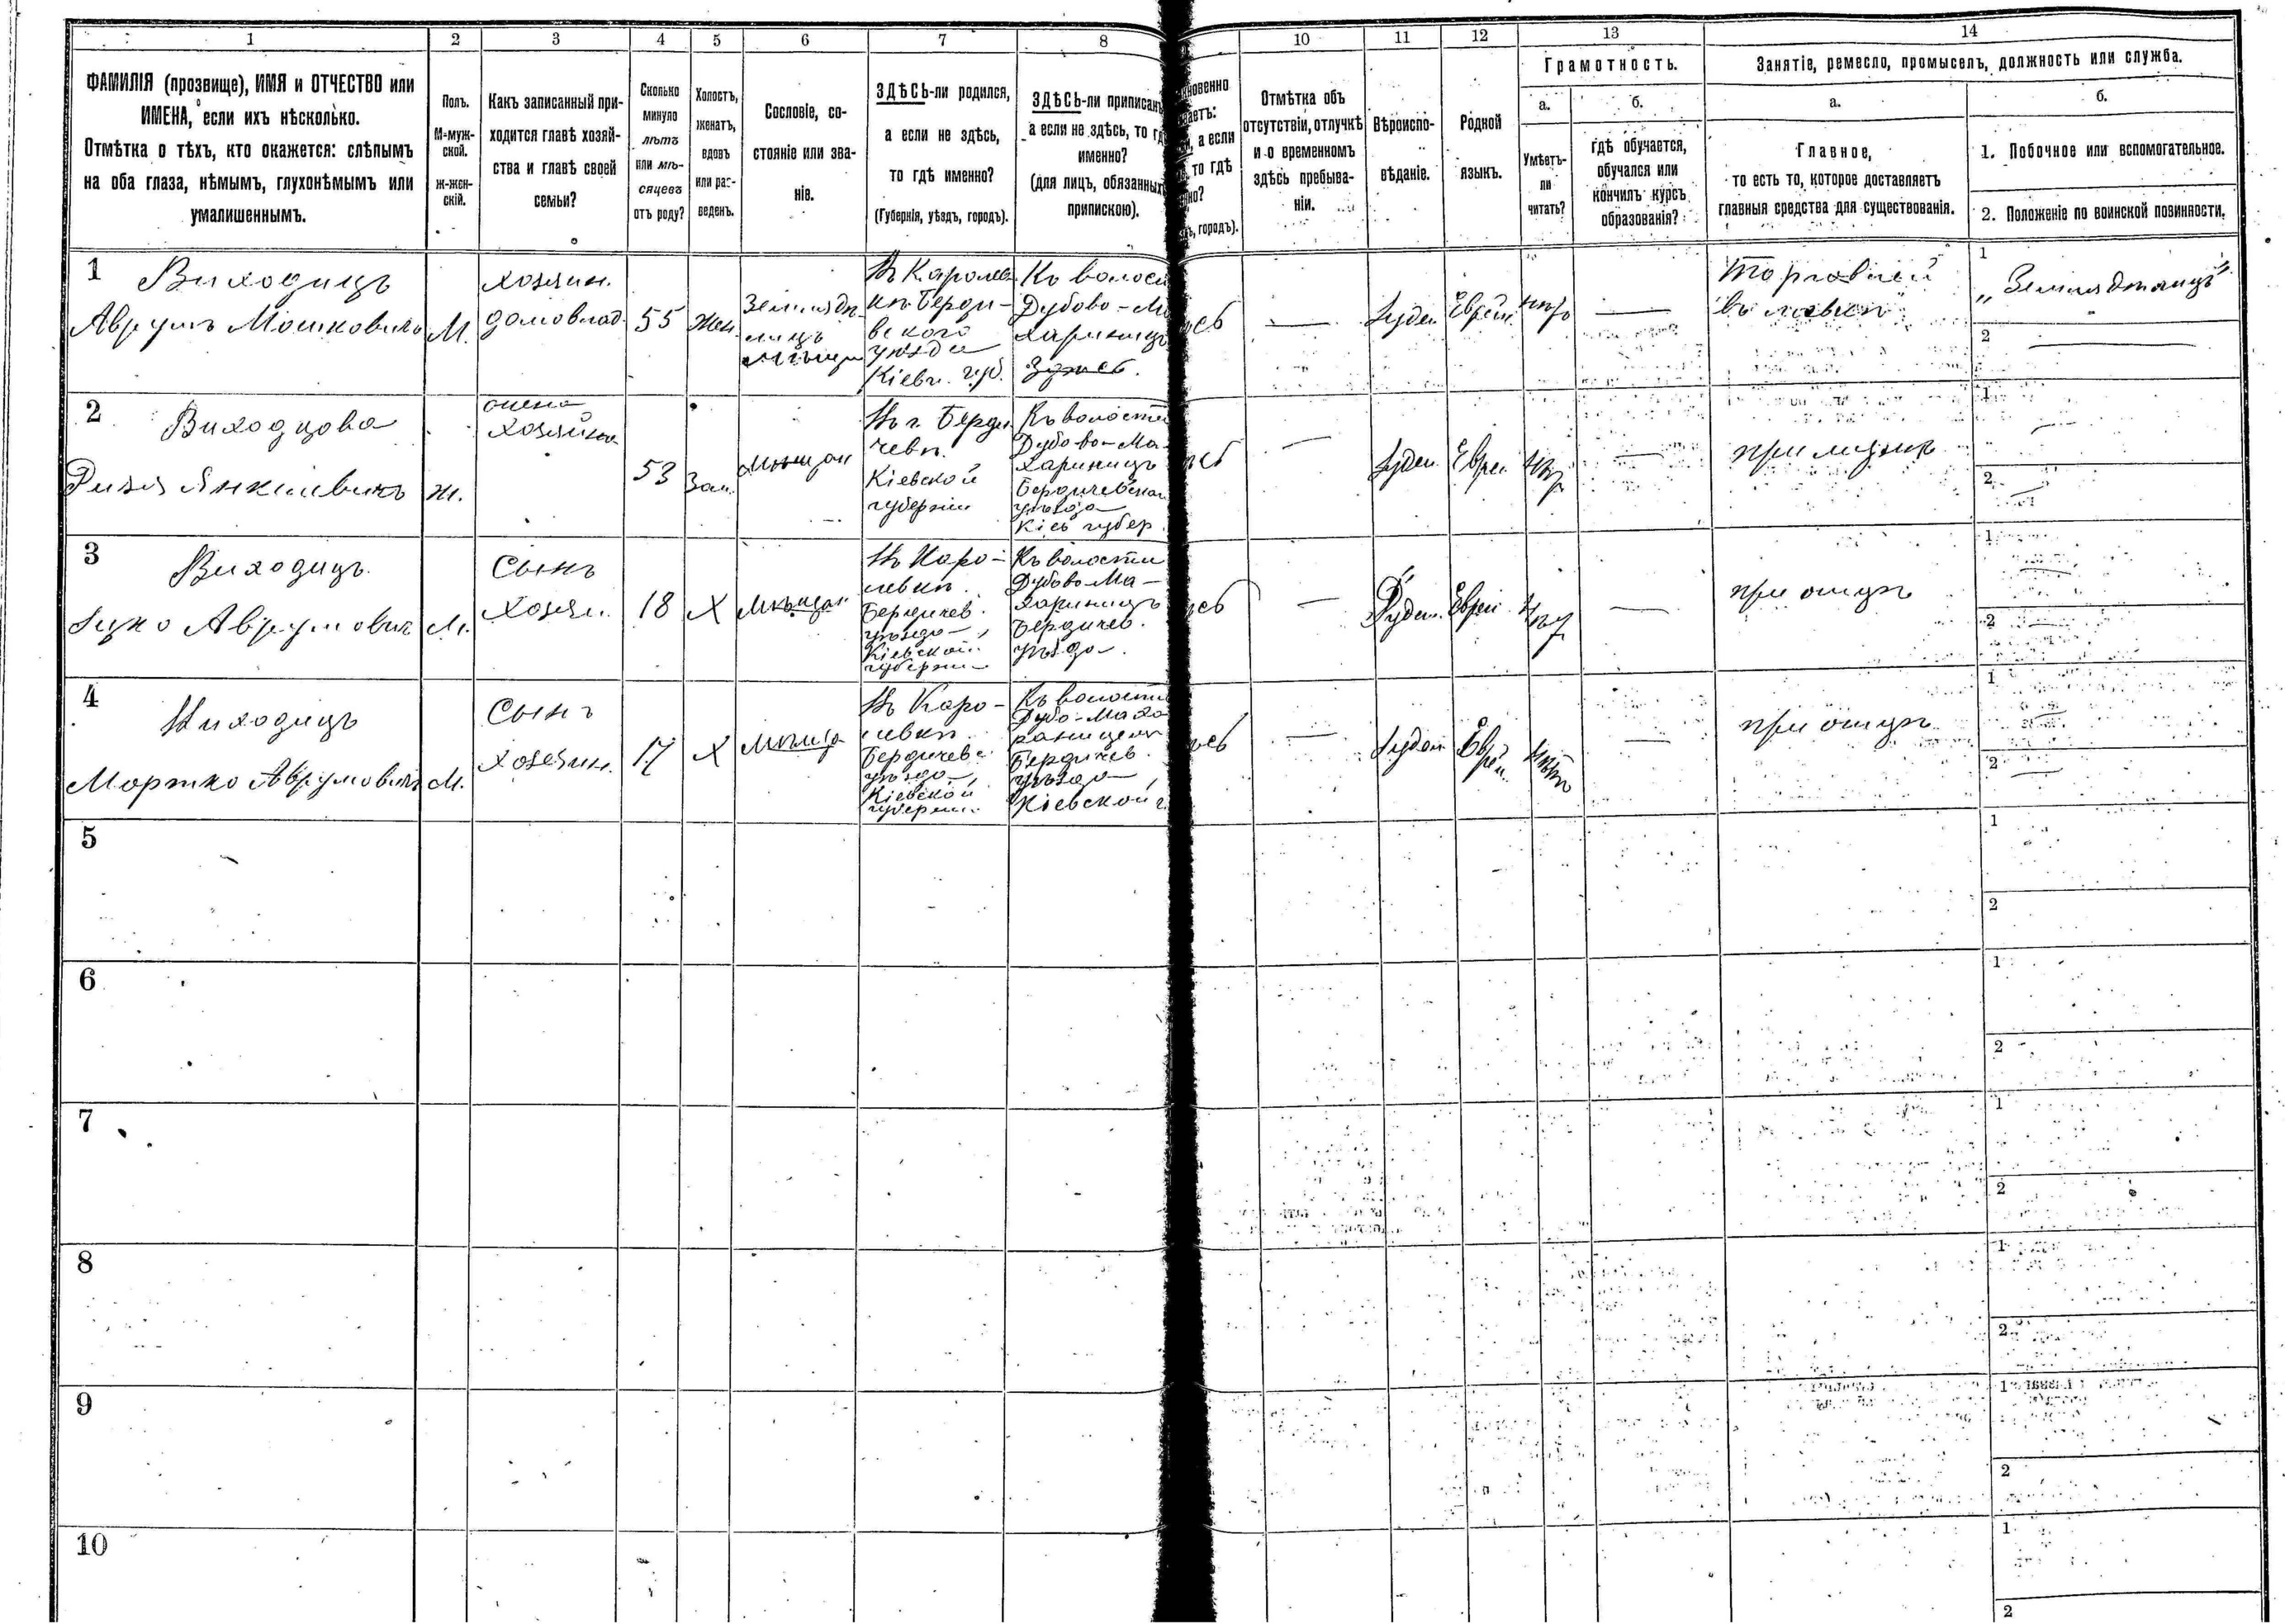 1 2 3 4 5 6 7 8 10 11 12 13 14
ФАМИЛІЯ (прозвище), ИМЯ и ОТЧЕСТВО или
ИМЕНА, если ихъ нѣсколько.
Отмѣтка о тѣхъ, кто окажется: слѣпымъ
на оба глаза, нѣмымъ, глухонѣмымъ или
умалишеннымъ.
Полъ.
М-муж-
ской.
Ж-жен-
скій.
Какъ записанный при-
ходится главѣ хозяй-
ства и главѣ своей
семьи?
Сколько
минуло
лѣтъ
или мѣ-
сяцевъ
отъ роду?
Холостъ,
женатъ,
вдовъ
или раз-
веденъ.
Сословіе, со-
стояніе или зва-
ніе.
ЗДѢСЬ-ли родился,
а если не здѣсь,
то гдѣ именно?
(Губернія, уѣздъ, городъ).
ЗДѢСЬ-ли приписанъ
а если не здѣсь, то гд
именно?
(для лицъ, обязанных
припискою).
новенно
аетъ:
, а если
то гдѣ
но?
ъ, городъ).
Отмѣтка объ
отсутствіи, отлучкѣ
и о временномъ
здѣсь пребыва-
ніи.
Вѣроиспо-
вѣданіе.
Родной
языкъ.
Грамотность.
а.
Умѣетъ-
ли
читать?
б.
гдѣ обучается,
обучался или
кончилъ курсъ
образованія?
Занятіе, ремесло, промыселъ, должность или служба.
а.
Главное,
то есть то, которое доставляетъ
главныя средства для существованія.
б.
1. Побочное или вспомогательное.
2. Положеніе по воинской повинности.
1
Виходицъ
Аврумъ Мошковичъ
М.
хозяин.
домовлад.
55
Жен.
Земледѣ
лецъ
В Каролев
кѣ Берди-
вского
уѣзда
Кіевн. губ.
Къ волос
Дубово-М
хариницъ
Здѣсь.
сь
—
Іудей
Еврей.
нѣт
—
Торговлей
въ лавкѣ
1
„Земледѣлецъ"
2
2
Виходцова
Рися Янкелевичъ
ж.
жена
хозяина
53
Зам.
мѣщан
Въ г. Берди
чевѣ
Кіевской
губерніи
Къ волости
Дубово-Ма-
хариницъ
Бердичевска
уѣзда
Кіев губер
сь
—
Іудей.
Еврей
нѣт
—
при мужѣ
1
2
3
Виходицъ.
Іцко Аврумович
М.
Сынъ
Хозяи.
18
Х
Мѣщан
Въ Каро-
левкѣ.
Бердичев.
уѣзда,
Кіевской
губерни
Къ волости
Дубово Ма-
хариницъ
Бердичев.
уѣзда.
сь
—
Іудей.
Еврей
нѣт
—
при отцѣ
1
2
4
Виходицъ
Моршко Аврумовичъ
М.
Сынъ
Хозяин.
17
Х
Мѣща
Въ Каро-
левкѣ.
Бердичев.
уѣзда,
Кіевской
губерни.
Къ волости
Дубо-Маха
Бердичев.
уѣзда,
Кіевской г.
сь
—
Іудей
Еврей.
нѣт
—
при отцѣ
1
2
5
1
2
6
1
2
7
1
2
8
1
2
9
1
2
10
1
2